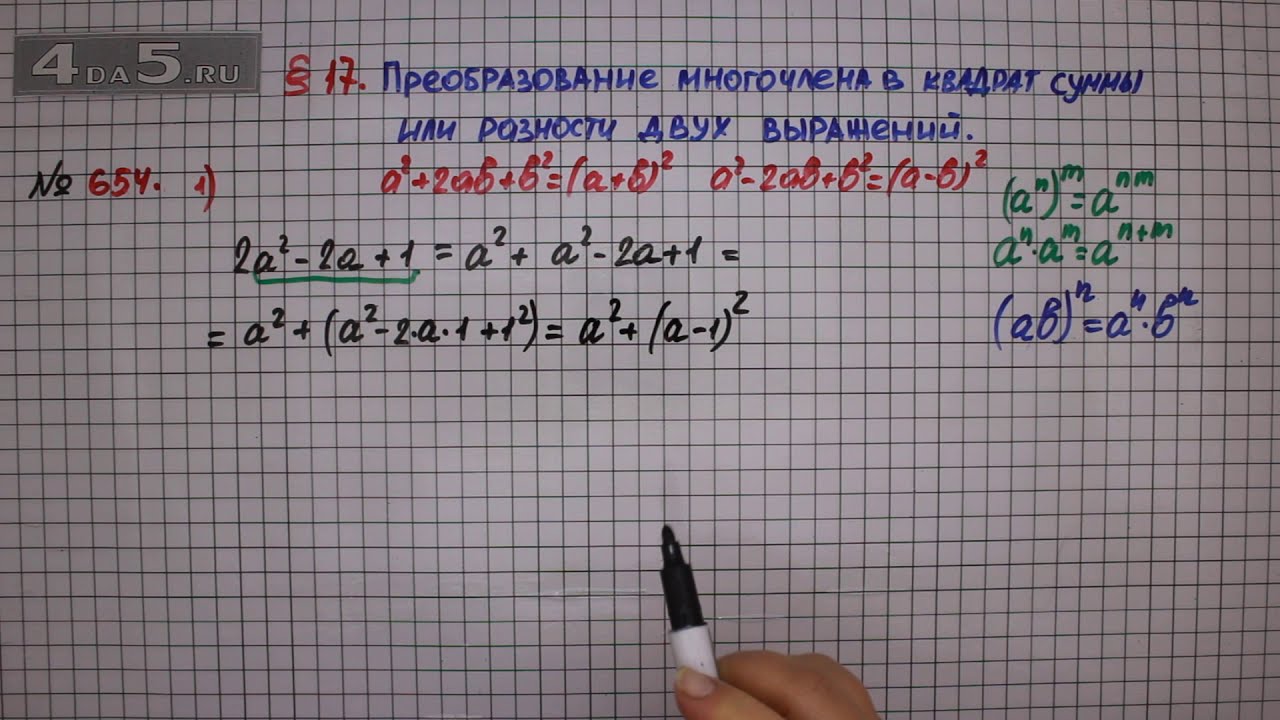 4DA5.RU
§ 17. Преобразование многочлена в квадрат суммы
или разности двух выражений.
№ 654. 1)
a²+2ab+b²=(a+b)² a²-2ab+b²=(a-b)²
(aⁿ)ᵐ=aⁿᵐ
aⁿ·aᵐ=aⁿ⁺ᵐ
2a²-2a+1=a²+ a²-2a+1=
=a²+(a²-2·a·1+1²)=a²+(a-1)²
(ab)ⁿ=aⁿ·bⁿ